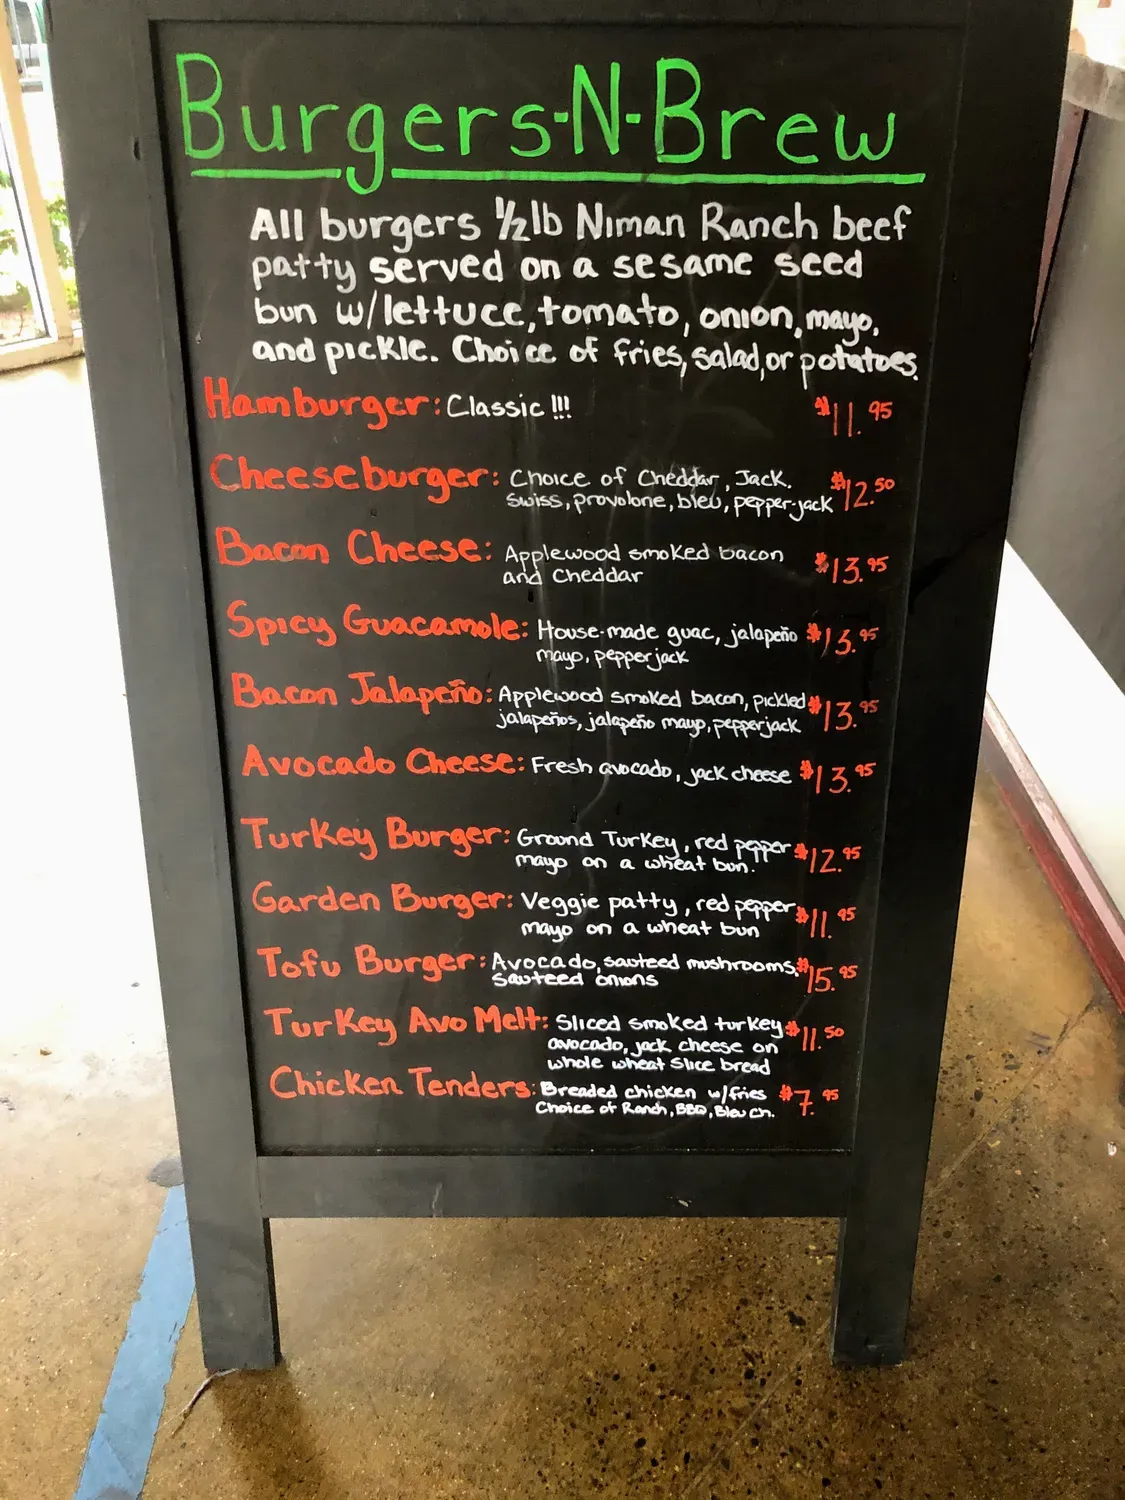 Burgers-N-Brew
All burgers ½lb Niman Ranch beef
patty served on a sesame seed
bun w/lettuce, tomato, onion, mayo,
and pickle. Choice of fries, salad, or potatoes.
Hamburger: Classic !!! $11.95
Cheeseburger: Choice of Cheddar, Jack. $12.50
swiss, provolone, bleu, pepper-jack
Bacon Cheese: Applewood smoked bacon $13.95
and Cheddar
Spicy Guacamole: House-made guac, jalapeño $13.95
mayo, pepperjack
Bacon Jalapeño: Applewood smoked bacon, pickled $13.95
jalapeños, jalapeño mayo, pepperjack
Avocado Cheese: Fresh avocado, jack cheese $13.95
Turkey Burger: Ground Turkey, red pepper $12.95
mayo on a wheat bun.
Garden Burger: Veggie patty, red pepper $11.95
mayo on a wheat bun
Tofu Burger: Avocado, sauteed mushrooms, $15.95
sauteed onions
Turkey Avo Melt: Sliced smoked turkey $11.50
avocado, jack cheese on
whole wheat slice bread
Chicken Tenders: Breaded chicken w/fries $7.95
Choice of Ranch, BBQ, Bleu Ch.